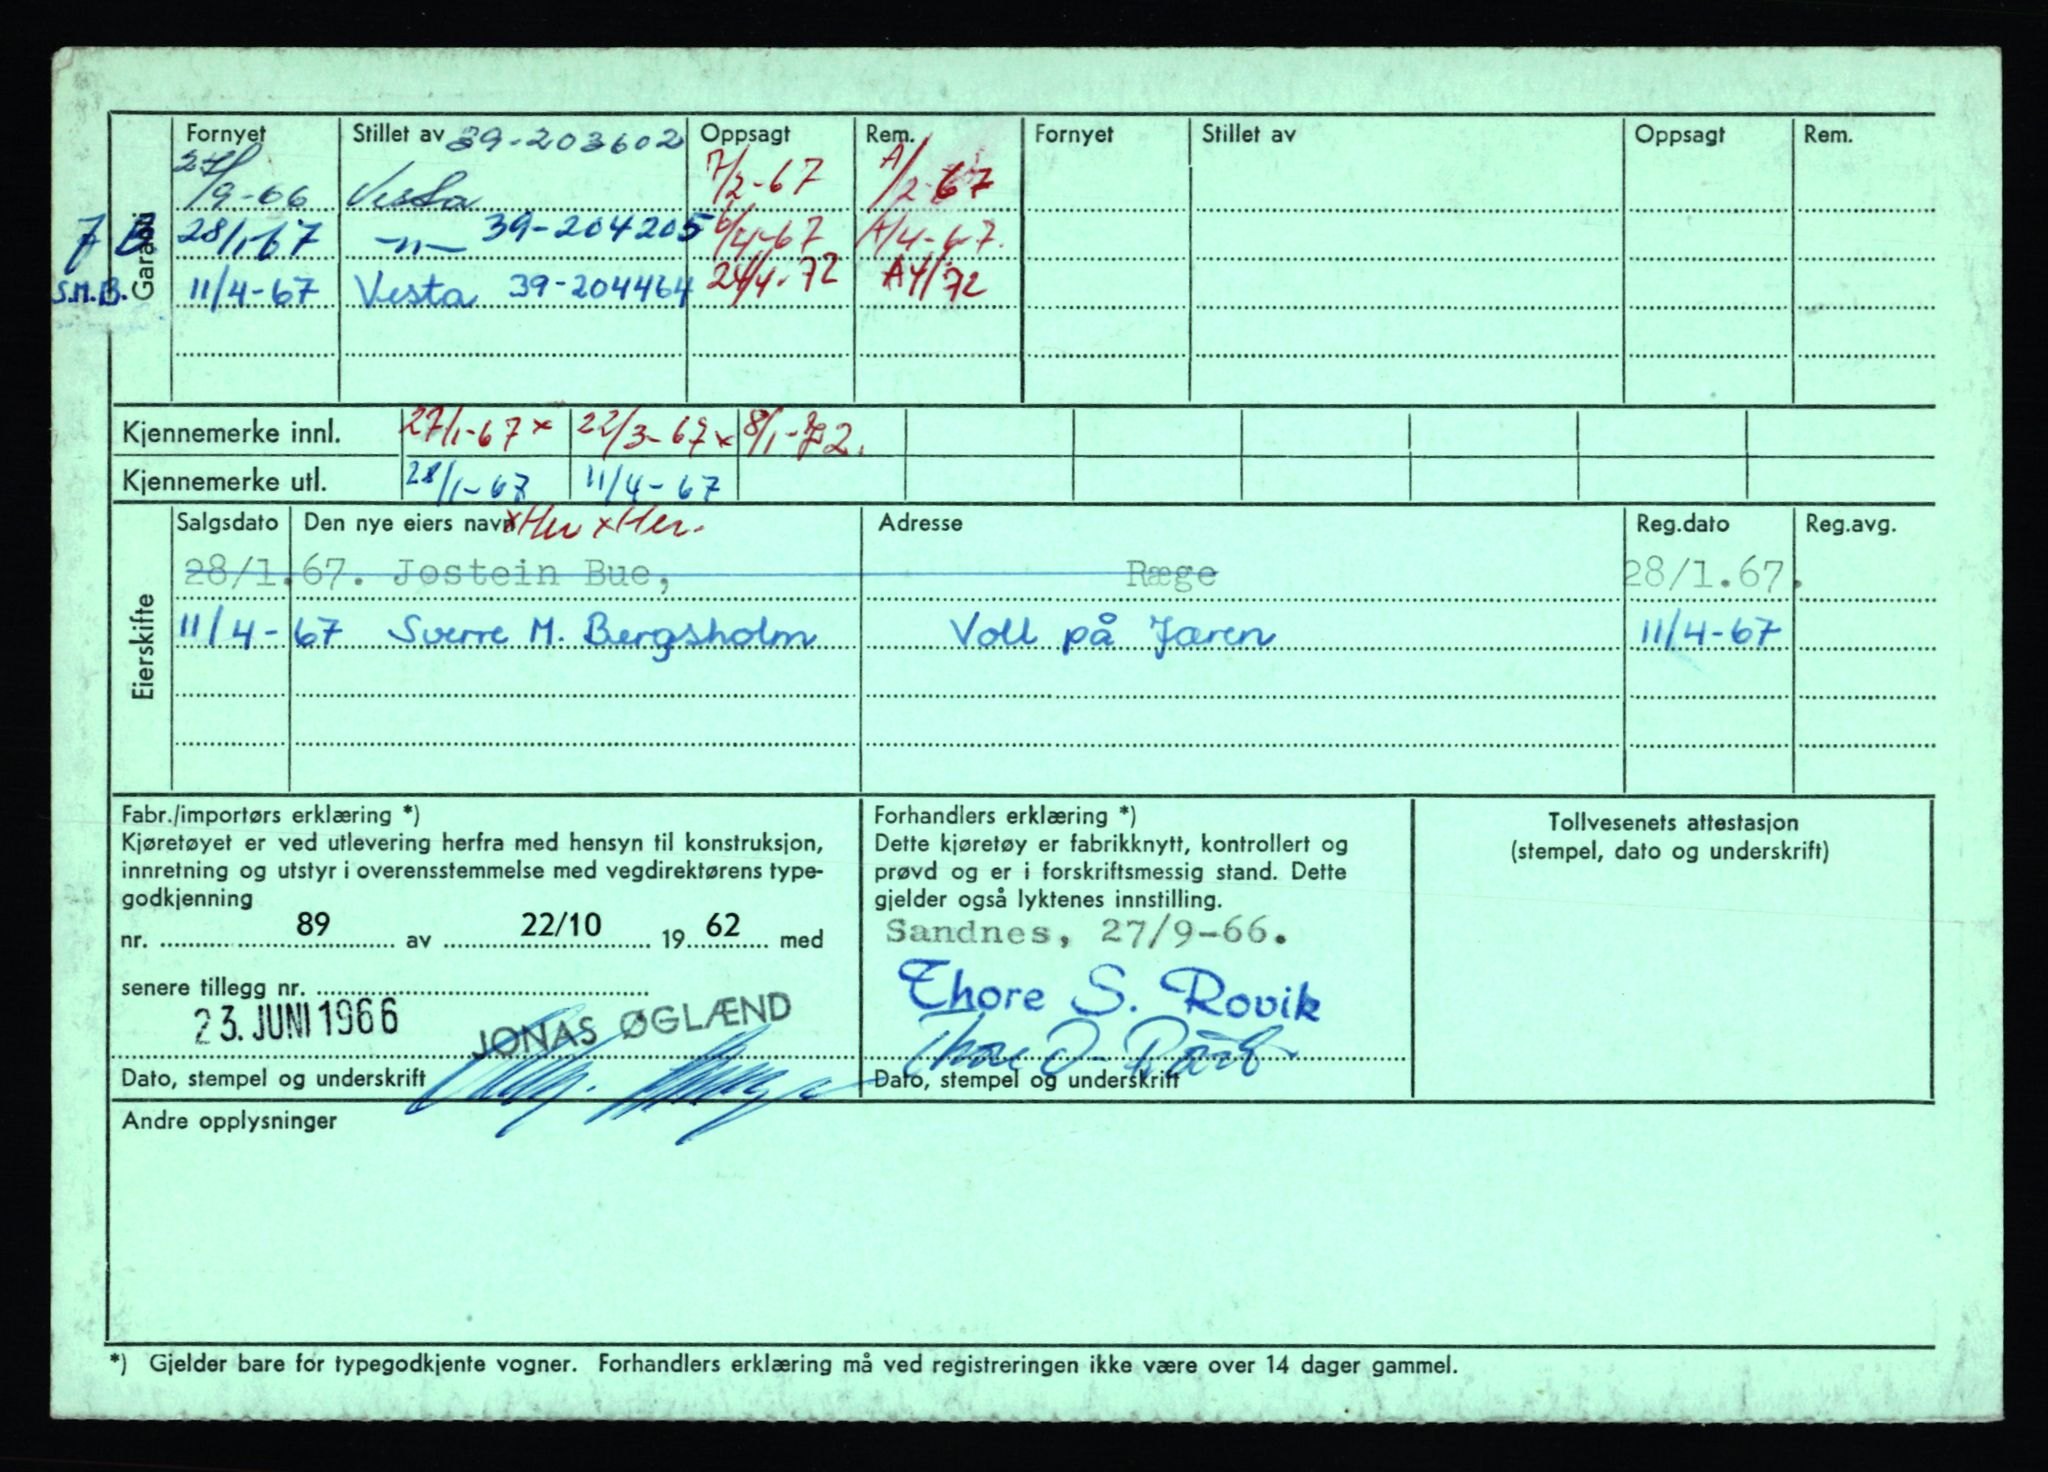 Fornyet Stillet av 39-203602 Oppsagt Rem. Fornyet Stillet av Oppsagt Rem.
27/9-66 Vesta 7/2-67 A/2-67
28/1-67 -"- 39-204205 6/4-67 A/4-67.
S.M.B. 11/4-67 Vesta 39-204464 24/4-72 A4/72
Garanti
Kjennemerke innl. 27/1-67 x 22/3-67 x 8/1-72.
Kjennemerke utl. 28/1-67 11/4-67
Salgsdato Den nye eiers navn xHer xHer. Adresse Reg.dato Reg.avg.
28/1.67. Jostein Bue, Ræge 28/1.67.
11/4-67 Sverre M. Bergsholm Voll på Jæren 11/4-67
Eierskifte
Fabr./importørs erklæring *)
Kjøretøyet er ved utlevering herfra med hensyn til konstruksjon,
innretning og utstyr i overensstemmelse med vegdirektørens type-
godkjenning
nr. 89 av 22/10 1962 med
senere tillegg nr.
23. JUNI 1966 JONAS ØGLÆND
Dato, stempel og underskrift
Forhandlers erklæring *)
Dette kjøretøy er fabrikknytt, kontrollert og
prøvd og er i forskriftsmessig stand. Dette
gjelder også lyktenes innstilling.
Sandnes, 27/9-66.
Thore S. Rovik
Dato, stempel og underskrift
Tollvesenets attestasjon
(stempel, dato og underskrift)
Andre opplysninger
*) Gjelder bare for typegodkjente vogner. Forhandlers erklæring må ved registreringen ikke være over 14 dager gammel.